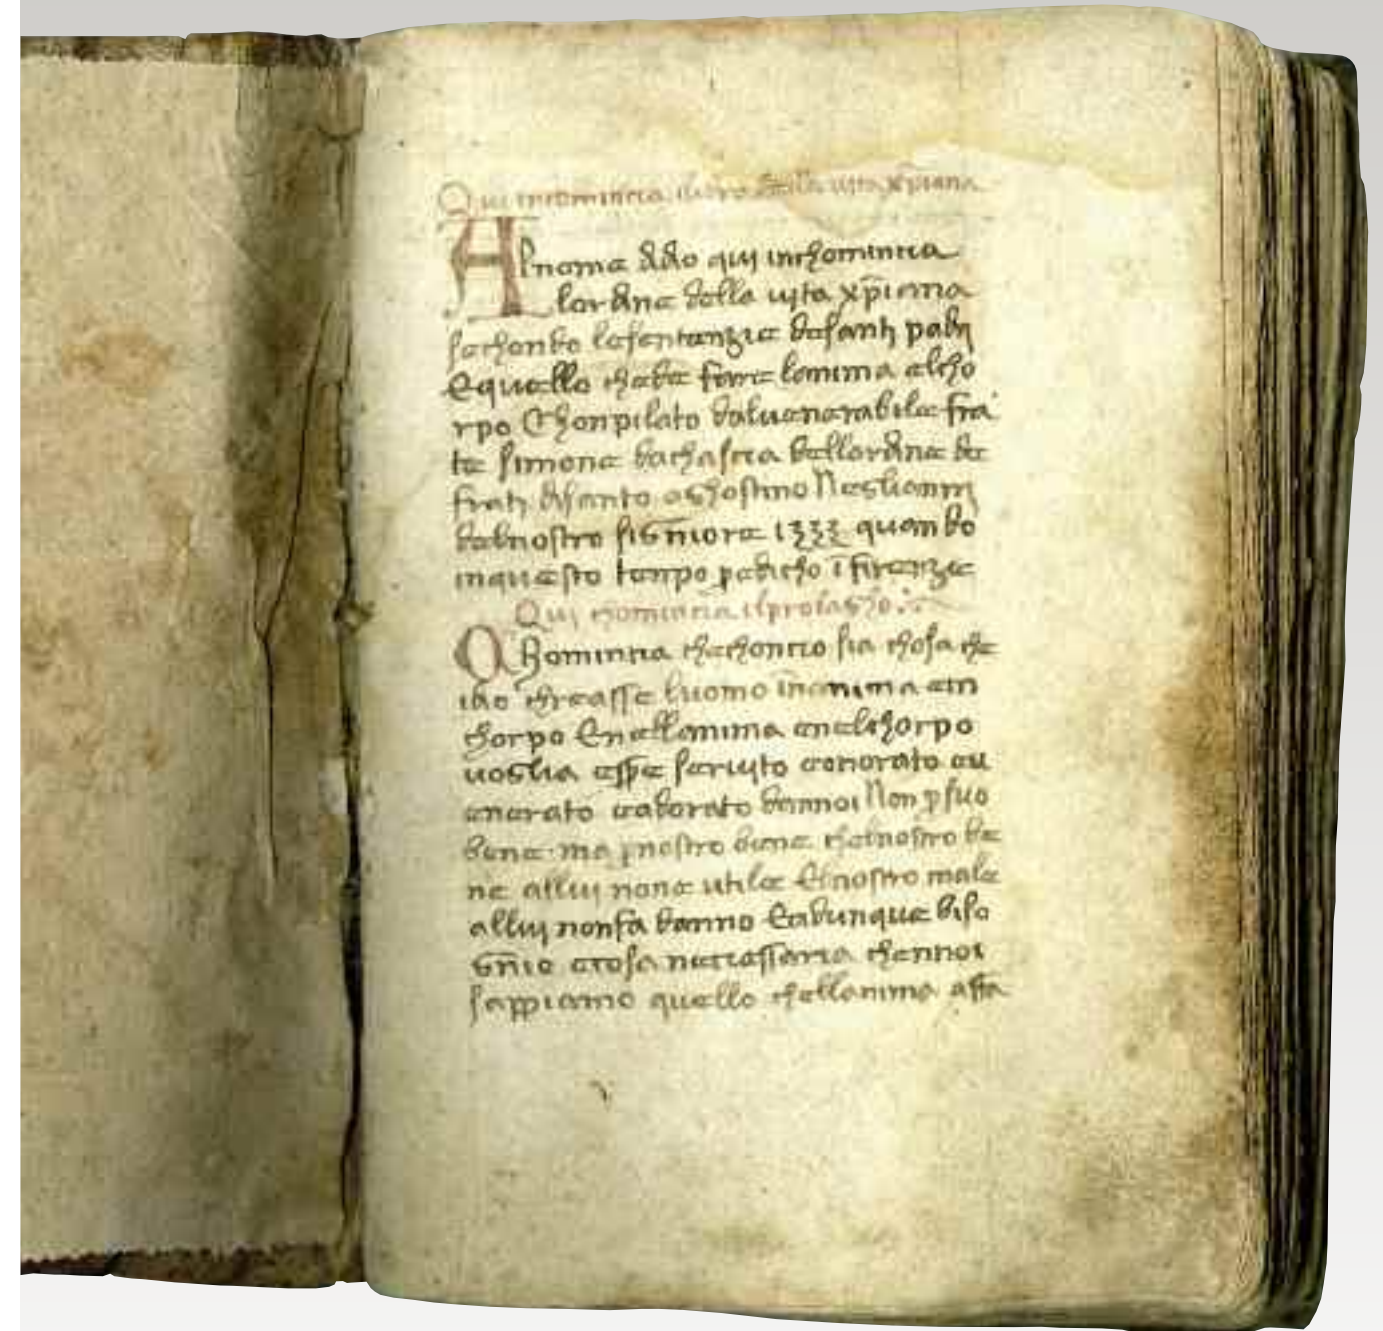 Qui incomincia ilibro della vita xp̄iana
Alnome ddo quj inchomincia
lordine della ujta xp̄iana
sechondo lesentenzie desantj padrj
Equello chedee fare lanima elcho
rpo Chonpilato daluenerabile fra
te simone dachascia dellordine de
fratj disanto aghostino Neglianni
delnostro signiore 1333 quando
inquesto tenpo predicho ī firenzie
Quj chomincia ilprolagho
Chomincia chechoncio sia chosa che
ido chreasse luomo īnanima ein
chorpo Enellanima enelchorpo
uoglia esse seruito eonorato eu
enerato eadorato dannoi Non p suo
bene ma p nostro bene chelnostro be
ne alluj none utile Elnostro male
alluj nonfa danno Eadunque biso
gnio echosa neciessaria chennoi
sappiamo quello chellanima assa